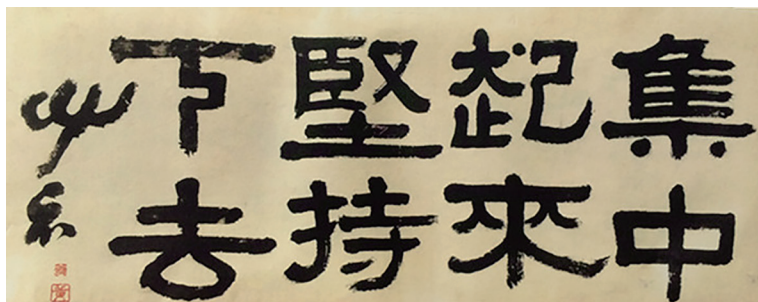 集中
起來
堅持
下去